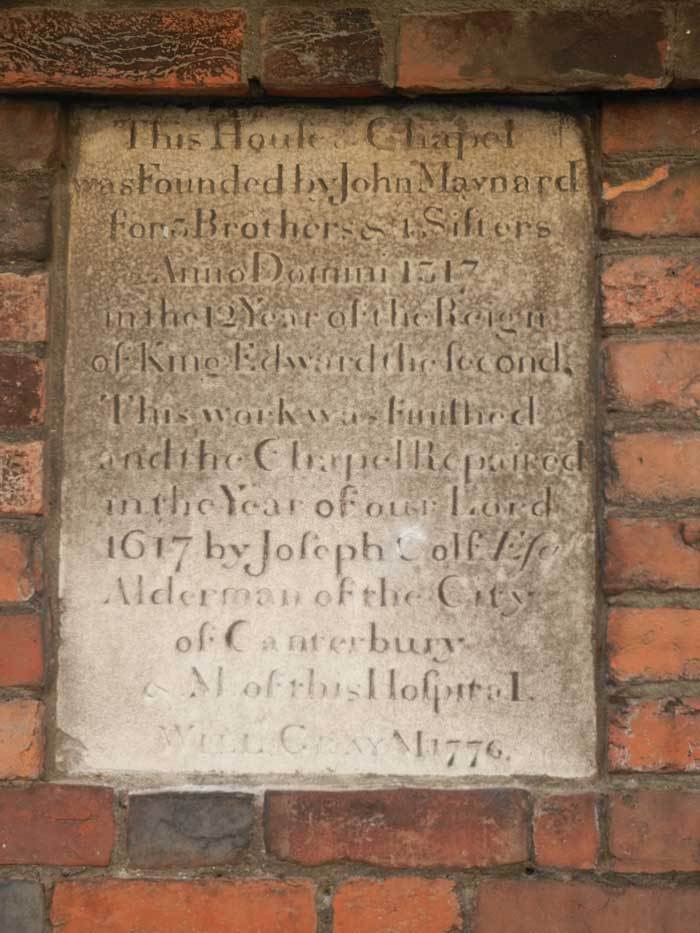 This Houſe & Chapel
was Founded by John Maynard
for 3 Brothers & 4 Siſters
Anno Domini 1317
in the 12 Year of the Reign
of King Edward the ſecond.
This work was finiſhed
and the Chapel Repaired
in the Year of our Lord
1617 by Joſeph Colf Eſqr
Alderman of the City
of Canterbury
& M. of this Hoſpital.
WILL GRAY M 1776.